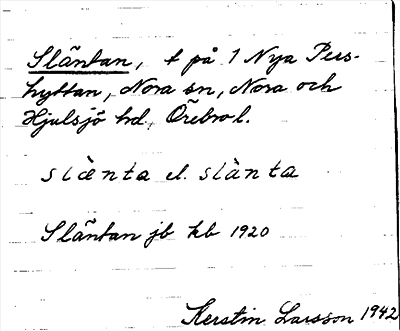 Släntan, t på 1 Nya Pers-
hyttan, Nora sn, Nora och
Hjulsjö hd, Örebro l.
slænta el. slànta
Släntan jb kb 1920
Kerstin Larsson 1942